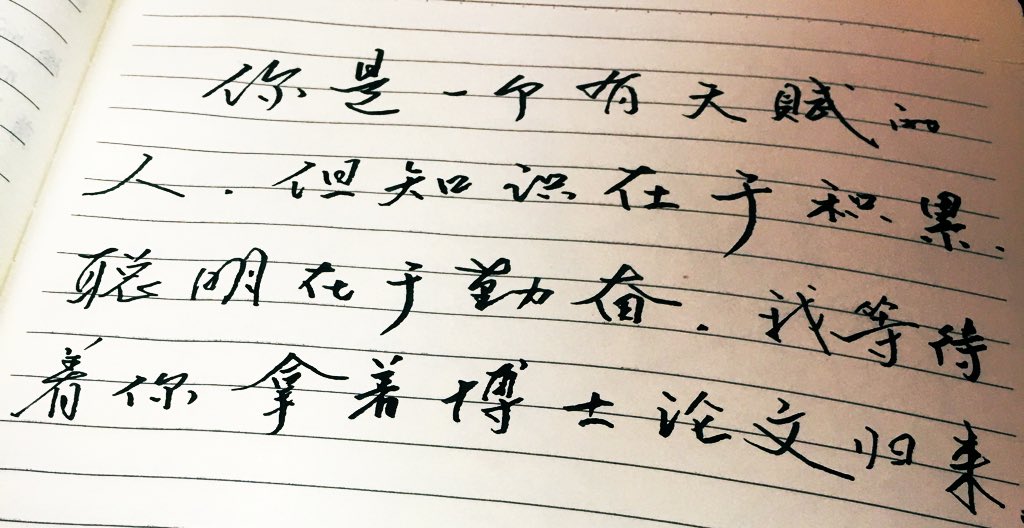 你是一个有天赋的
人.但知识在于积累.
聪明在于勤奋.我等待
着你拿着博士论文归来